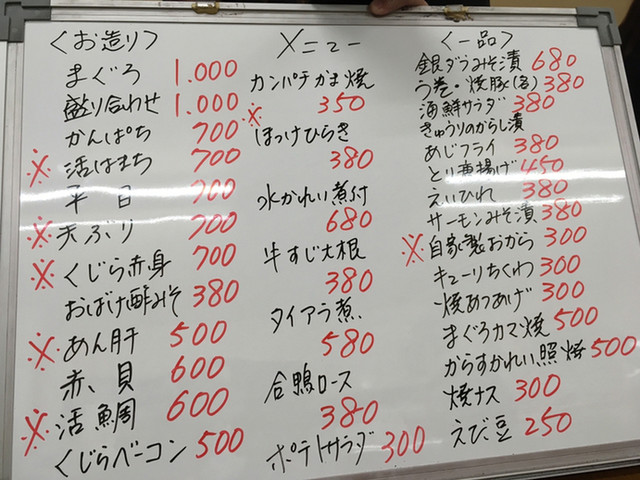 <お造り>
まぐろ 1.000
盛り合わせ 1.000
かんぱち 700
※活はまち 700
平目 700
※天ぶり 700
※くじら赤身 700
おばけ酢みそ 380
※あん肝 500
赤貝 600
※活鯛 600
くじらベーコン 500
メニュー
カンパチかま焼
350
※ほっけひらき
380
水かれい煮付
680
牛すじ大根
380
タイアラ煮
580
合鴨ロース
380
ポテトサラダ 300
<一品>
銀ダラみそ漬 680
う巻・焼豚(各) 380
海鮮サラダ 380
きゅうりのからし漬
あじフライ 380
とり唐揚げ 450
えいひれ 380
サーモンみそ漬 380
※自家製おから 300
キューリちくわ 300
焼あつあげ 300
まぐろカマ焼 500
からすかれい照焼 500
焼ナス 300
えび豆 250